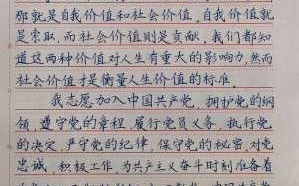 那就是自我价值和社会价值,自我价值就
是索取,而社会价值则是贡献,我们都知
道这两种价值对人生有重大的影响力,然而
社会价值才是衡量人生价值的标准.
我志愿加入中国共产党,拥护党的纲
领,遵守党的章程,履行党员义务,执行党
的决定,严守党的纪律,保守党的秘密,对党
忠诚,积极工作,为共产主义奋斗时刻准备着